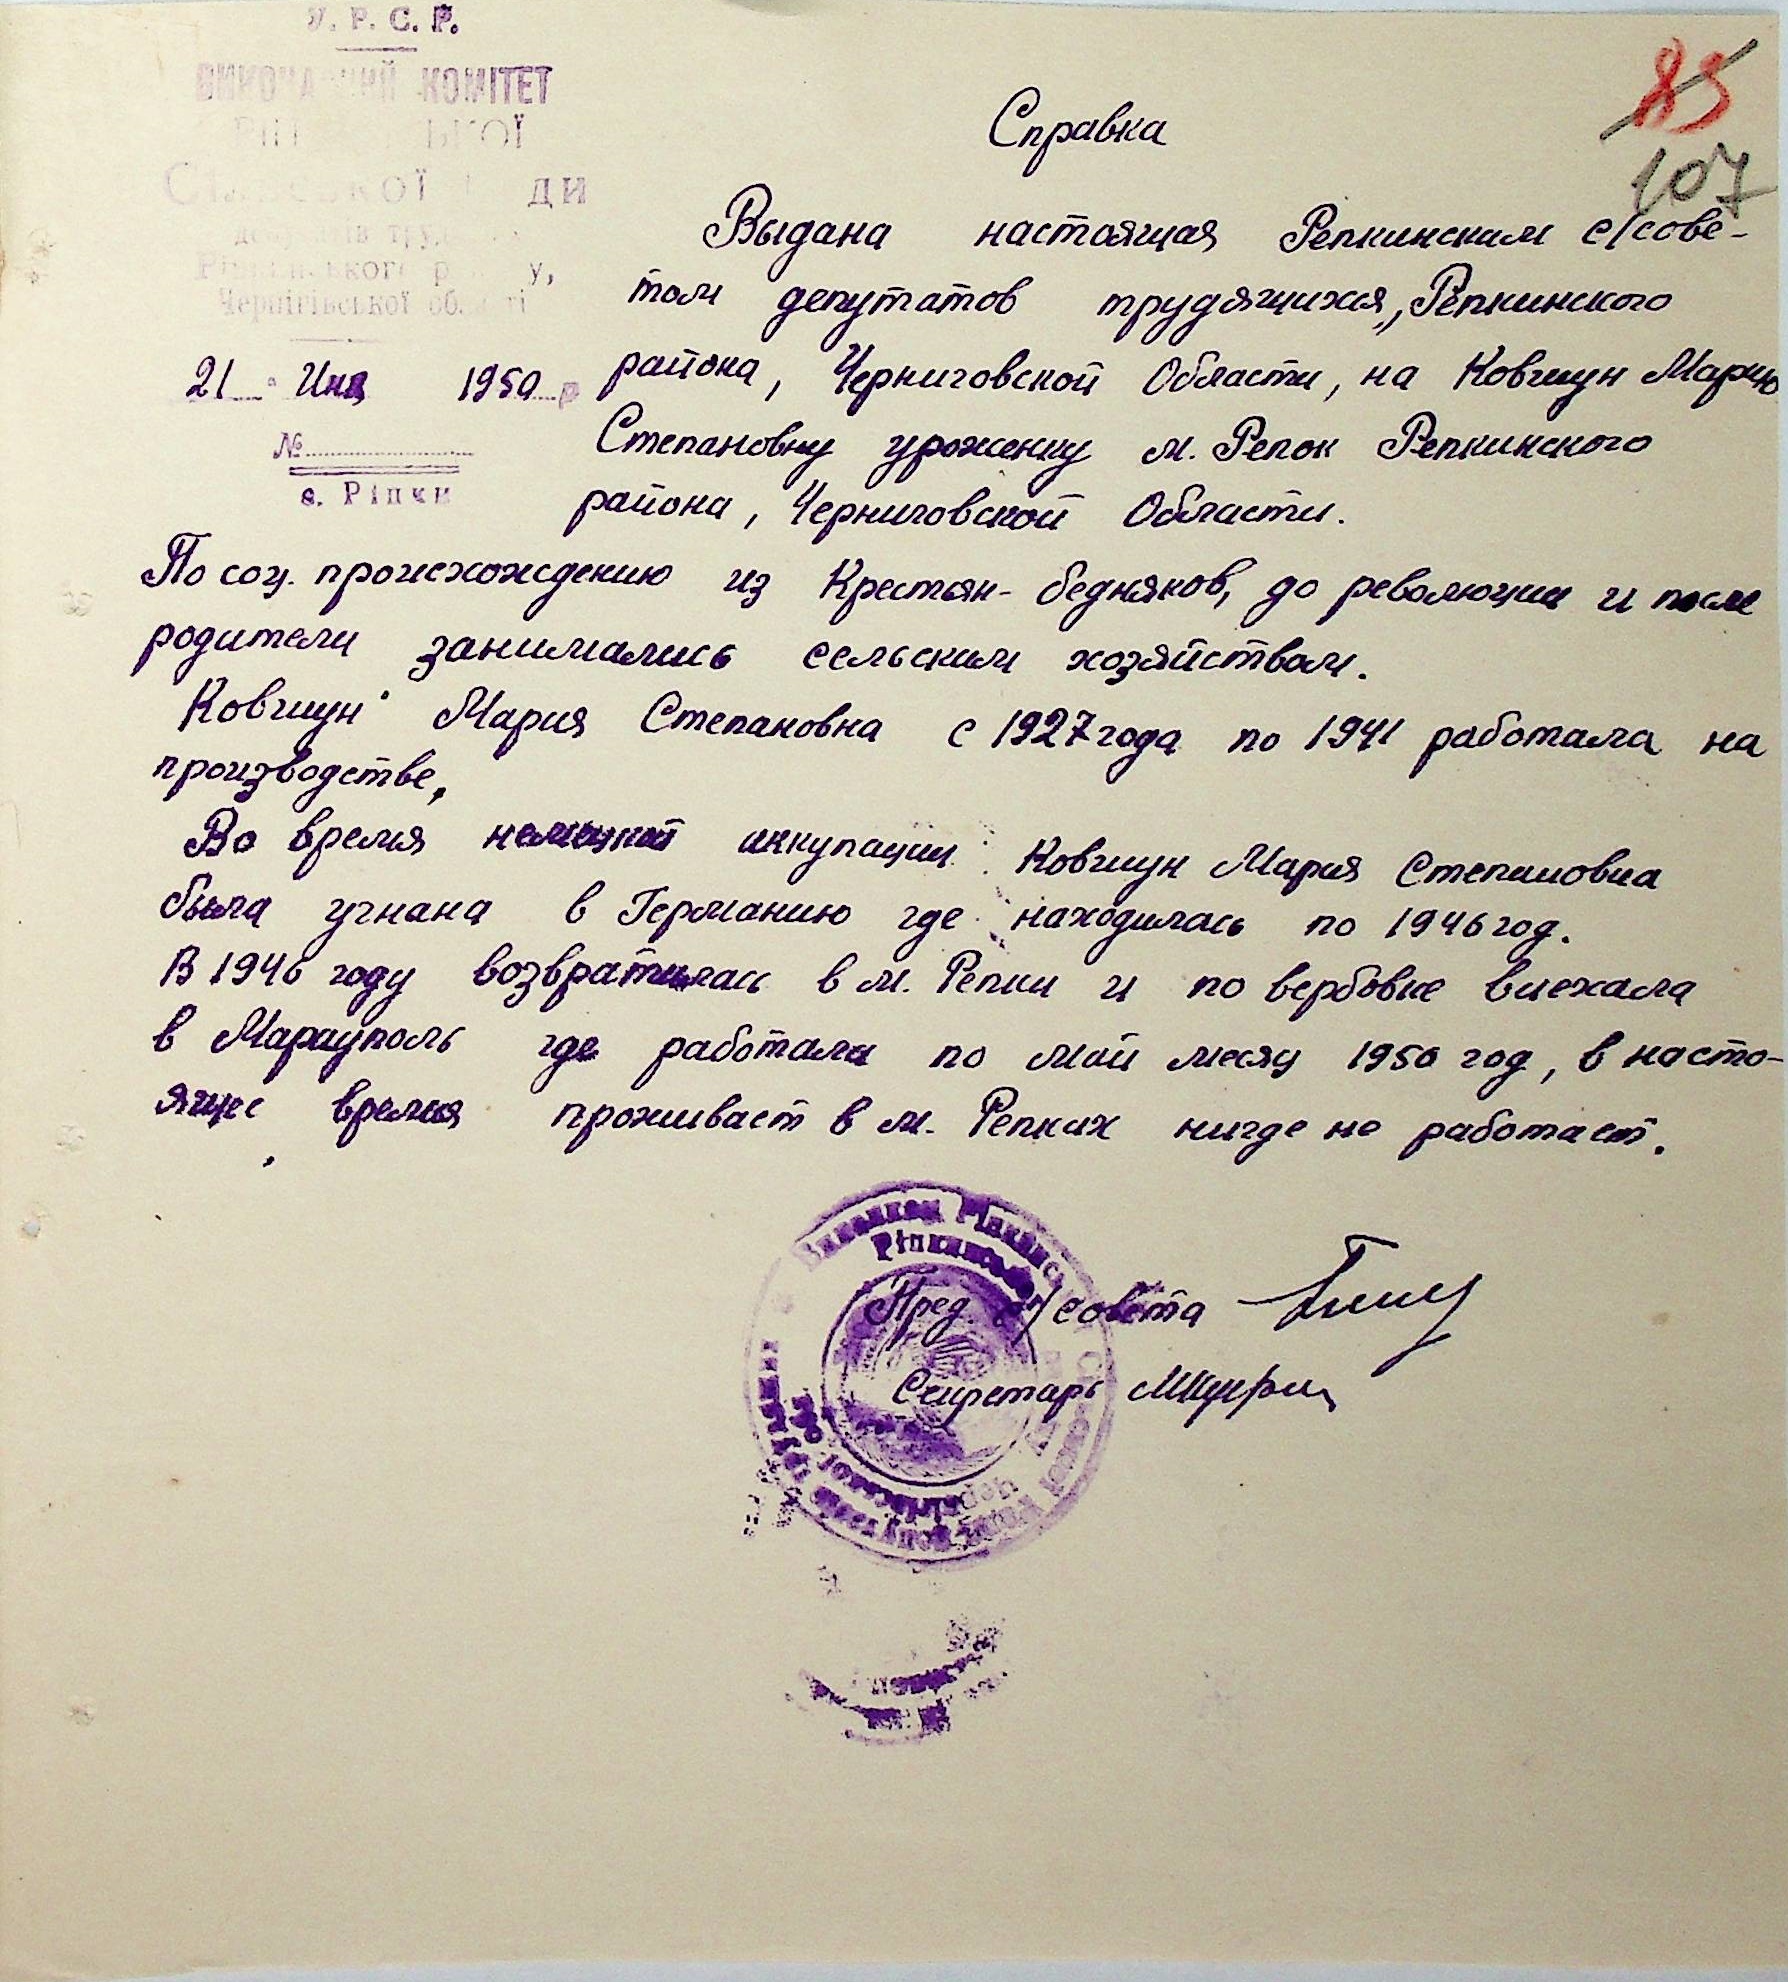 У. Р. С. Р.
ВИКОНАВЧИЙ КОМІТЕТ
Сільської Ради
депутатів труд
Ріпкинського району,
Чернігівської області
21 1950 р
№
с. Ріпки
83
107
Справка
Выдана настоящая Репкинским с/сове-
том депутатов трудящихся, Репкинского
района, Черниговской Области, на Ковшун Марию
Степановну уроженку м. Репок Репкинского
района, Черниговской Области.
По соц. происхождению из Крестьян-бедняков, до революции и после
родители занимались сельским хозяйством.
Ковшун Мария Степановна с 1927 года по 1941 работала на
производстве,
Во время немецкой аккупации Ковшун Мария Степановна
была угнана в Германию где находилась по 1946 год.
В 1946 году возвратилась в м. Репки и по вербовке виехала
в Марауполь где работала по май месяц 1950 год, в насто-
ящее время проживает в м. Репках нигде не работает.
Виконком Ріпкинс
Ріпкинського
Пред. с/совета
Секретарь